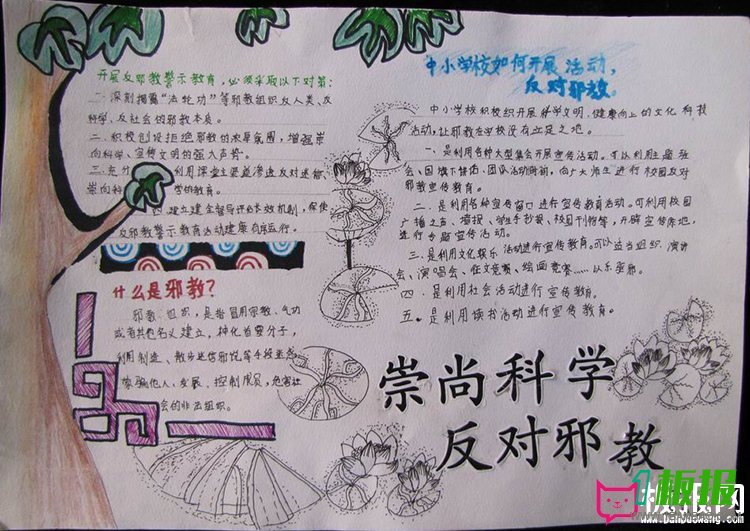 开展反邪教警示教育，必须采取以下对策：
一、深刻揭露“法轮功”等邪教组织反人类、反
科学、反社会的邪教本质。
二、积极创设拒绝邪教的浓厚氛围，增强崇
尚科学、宣传文明的强大声势。
三、充分 利用课堂主渠道渗透反对迷信、
崇尚科 学的教育。
四、建立建全督导评估长效机制，保使
反邪教警示教育活动健康有序运行。
什么是邪教？
邪教组织，是指冒用宗教、气功
或者其他名义建立，神化首要分子，
利用制造、散步迷信邪说等手段
骗他人，发展、控制成员，危害社
会的非法组织。
中小学校如何开展活动，
反对邪教。
中小学校积极组织开展科学文明、健康向上的文化科技
活动，让邪教在学校没有立足之地。
一、是利用各种大型集会开展宣传活动。可以利用主题班
会、国旗下讲话、团队活动时间，向广大师生进行校园反对
邪教宣传教育。
二、是利用各种宣传窗口进行宣传教育活动。可利用校园
广播之声、墙报、学生手抄报、校园刊物等，开辟宣传阵地，
进行专题宣传活动。
三、是利用文化娱乐活动进行宣传教育。可以适当组织，演讲
会、演唱会、征文竞赛、绘画竞赛……以乐至邪。
四、是利用社会活动进行宣传教育。
五、是利用读书活动进行宣传教育。
崇尚科学
反对邪教
1板报
板报网
www.banbaowang.com